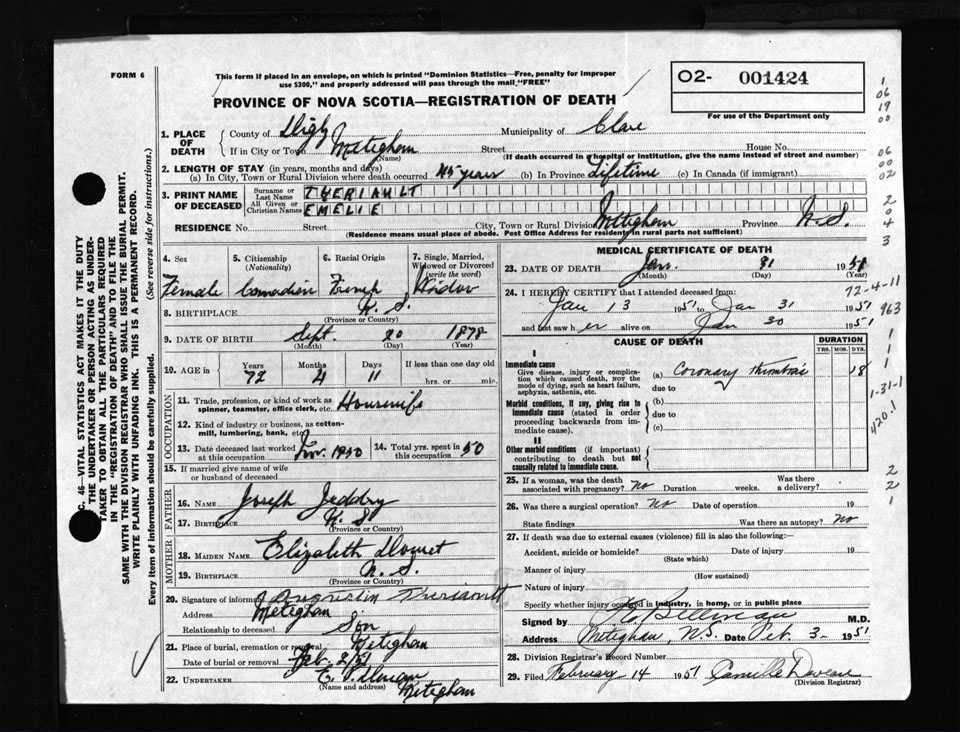 FORM 6
This form if placed in an envelope, on which is printed "Dominion Statistics—Free, penalty for improper
use $300," and properly addressed will pass through the mail "FREE"
PROVINCE OF NOVA SCOTIA—REGISTRATION OF DEATH
O2- 001424
For use of the Department only
1. PLACE OF DEATH County of Digby Municipality of Clare
If in City or Town Meteghan Street House No.
(Name) (If death occurred in hospital or institution, give the name instead of street and number)
2. LENGTH OF STAY (in years, months and days)
(a) In City, Town or Rural Division where death occurred 45 years (b) In Province Lifetime (c) In Canada (if immigrant)
3. PRINT NAME OF DECEASED Surname or Last Name THERIAULT
All Given or Christian Names EMELIE
RESIDENCE No. Street City, Town or Rural Division Meteghan Province N.S.
(Residence means usual place of abode. Post Office Address for residents in rural parts not sufficient)
4. Sex 5. Citizenship (Nationality) 6. Racial Origin 7. Single, Married, Widowed or Divorced (write the word)
Female Canadian French Widow
8. BIRTHPLACE N. S.
(Province or Country)
9. DATE OF BIRTH Sept. 20 1878
(Month) (Day) (Year)
10. AGE in Years Months Days If less than one day old
72 4 11 hrs. or min.
OCCUPATION
11. Trade, profession, or kind of work as spinner, teamster, office clerk, etc. Housewife
12. Kind of industry or business, as cotton-mill, lumbering, bank, etc.
13. Date deceased last worked at this occupation 1950 14. Total yrs. spent in this occupation 50
15. If married give name of wife or husband of deceased
FATHER
16. Name Joseph Jeddry
17. Birthplace N. S.
(Province or Country)
MOTHER
18. MAIDEN NAME Elizabeth Doucet
19. BIRTHPLACE N. S.
(Province or Country)
20. Signature of informant Augustin Theriault
Address Meteghan
Relationship to deceased Son
21. Place of burial, cremation or removal Meteghan
Date of burial or removal Feb. 2/51
22. UNDERTAKER
(Name and address) Meteghan
MEDICAL CERTIFICATE OF DEATH
23. DATE OF DEATH Jan. 31 1951
(Month) (Day) (Year)
24. I HEREBY CERTIFY that I attended deceased from:
Jan 13 1951 to Jan 31 1951
and last saw her alive on Jan 30 1951
CAUSE OF DEATH DURATION
YRS. MOS. DYS.
I
Immediate cause
Give disease, injury or complication which caused death, NOT the mode of dying, such as heart failure, asphyxia, asthenia, etc.
(a) Coronary thrombosis 18
due to
Morbid conditions, if any, giving rise to immediate cause (stated in order proceeding backwards from immediate cause).
(b)
due to
(c)
II
Other morbid conditions (if important) contributing to death but not causally related to immediate cause.
25. If a woman, was the death associated with pregnancy? No Duration weeks. Was there a delivery?
26. Was there a surgical operation? No Date of operation 19
State findings Was there an autopsy? No
27. If death was due to external causes (violence) fill in also the following:—
Accident, suicide or homicide? Date of injury 19
(State which)
Manner of injury
(How sustained)
Nature of injury
Specify whether injury occurred in industry, in home, or in public place
Signed by M.D.
Address Meteghan, N.S. Date Feb. 3- 1951
28. Division Registrar's Record Number
29. Filed February 14 1951 Camille
(Division Registrar)
C. 46—VITAL STATISTICS ACT MAKES IT THE DUTY
OF THE UNDERTAKER OR PERSON ACTING AS UNDER-
TAKER TO OBTAIN ALL THE PARTICULARS REQUIRED
IN THE "REGISTRATION OF DEATH" AND TO FILE THE
SAME WITH THE DIVISION REGISTRAR WHO SHALL ISSUE THE BURIAL PERMIT.
WRITE PLAINLY WITH UNFADING INK. THIS IS A PERMANENT RECORD.
Every item of information should be carefully supplied. (See reverse side for instructions.)
1
06
19
00
06
00
02
2
0
4
3
72-4-11
963
1
1
1
1-31-1
420.1
2
2
1